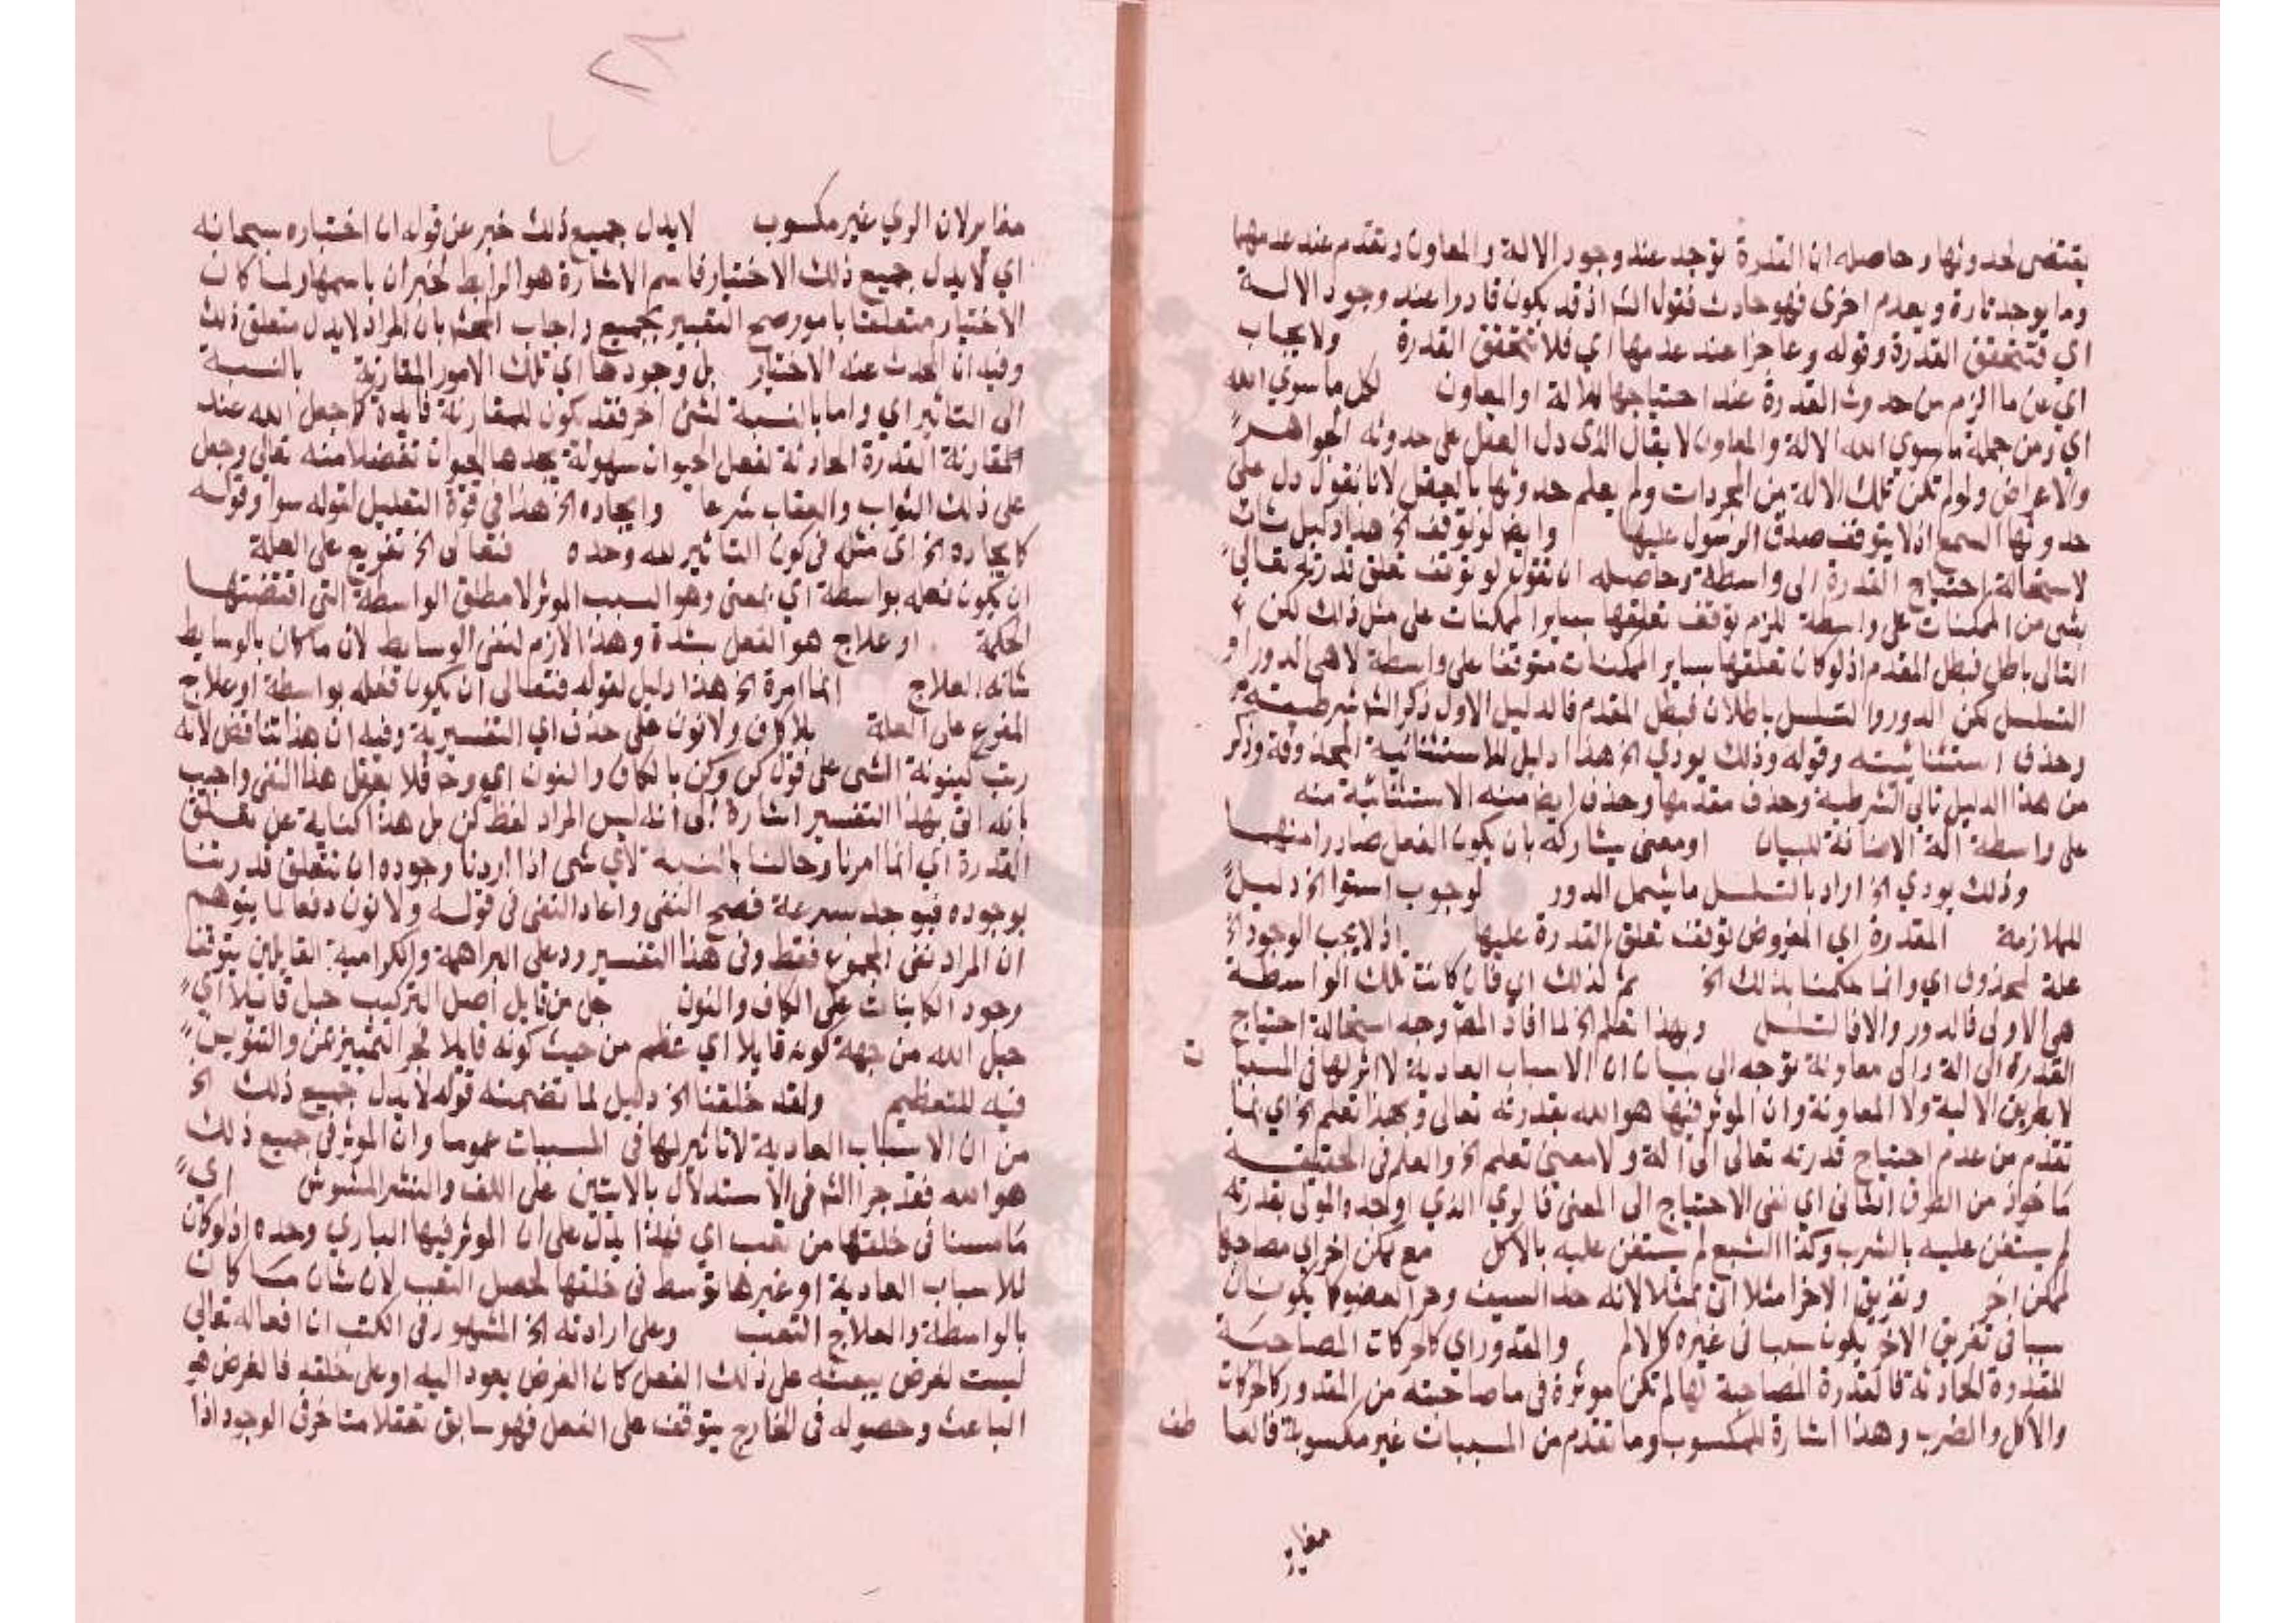 يقتضى حدوثها وحاصله ان القدرة توجد عند وجود الالة والمعاون وتعدم عند عدمهما
وما يوجد تارة ويعدم اخرى فهو حادث فقول الش اذ قد يكون قادرا عند وجود الالة
اي فتتحقق القدرة وقوله وعاجزا عند عدمها اي فلا تتحقق القدرة ولا يجاب
اي عن ما الزم من حدوث القدرة عند احتياجها للالة او المعاون لكل ما سوي الله
اي ومن جملة ما سوي الله الالة والمعاون لا يقال الذى دل العقل على حدوثه الجواهر
والاعراض ولو لم تكن تلك الالة من المجردات ولم يعلم حدوثها بالعقل لانا نقول دل على
حدوثها السمع اذ لا يتوقف صدق الرسول عليها وايضا لو توقف الخ هذا دليل ثان
لاستحالة احتياج القدرة الى واسطة وحاصله ان تقول لو توقف تعلق قدرته تعالى
بشى من الممكنات على واسطة للزم توقف تعلقها بساير الممكنات على مثل ذلك لكن
التالى باطل فبطل المقدم اذ لو كان تعلقها بساير الممكنات متوقفا على واسطة لاهى الدور او
التسلسل لكن الدور والتسلسل باطلان فبطل المقدم فالدليل الاول ذكر الش شرطيته
وحذف استثنائيته وقوله وذلك يودي الخ هذا دليل للاستثنائية المحذوفة وذكر
من هذا الدليل تالى الشرطية وحذف مقدمها وحذف ايضا منه الاستثنائية منه
على واسطة الة الاضافة للبيان او معنى يشاركه بان يكون الفعل صادرا منهما
وذلك يودي الخ اراد بالتسلسل ما يشمل الدور لوجوب استوا الخ دليل
للملازمة المقدرة اي المفروض توقف تعلق القدرة عليها اذ لا يجب الوجود الخ
علة لمحذوف اي وانما حكمنا بذلك الخ ثم كذلك اي فان كانت تلك الواسطة
هى الاولى فالدور والا فالتسلسل وبهذا تعلم الخ لما افاد المص وجه استحالة احتياج
القدرة الى الة والى معاونة توجه الى بيان ان الاسباب العادية لا اثر لها فى المسببات
لا بطريق الالية ولا المعاونة وان الموثر فيها هو الله بقدرته تعالى وبهذا تعلم الخ اي بما
تقدم من عدم احتياج قدرته تعالى الى الة ولا معنى تعلم الخ والعلم فى الحقيقة
ماخوذ من الطرف الثانى اي نفى الاحتياج الى المعنى فالري الذي اوجده المولى بقدرته
لم يستعن عليه بالشرب وكذا الشبع لم يستعن عليه بالاكل مع ممكن اخر اي مصاحبا
لممكن اخر وتفريق الاخر مثلا انى بمثلا لانه حد السيف وحز العضو كما يكونان
سببا فى تفريق الاخر يكون سببا فى غيره كالالم والمقدور اي كالحركات المصاحبة
للقدرة الحادثة فالقدرة المصاحبة لها لم تكن موثرة فى ما صاحبته من المقدور كالحركات
والاكل والضرب وهذا اشارة للمكسوب وما تقدم من المسببات غير مكسوبة فالعاطف
مغاير
مغاير لان الري غير مكسوب لا يدل جميع ذلك خبر عن قوله ان اختياره سبحانه
اي لا يدل جميع ذلك الاختيار فاسم الاشارة هو الرابط لخبر ان باسمها ولما كان
الاختيار متعلقا بامور صح التعبير بجميع واجاب المحشى بان المراد لا يدل متعلق ذلك
وفيه ان المحدث عنه الاختيار بل وجودها اي تلك الامور المقارنة بالنسبة
الى التاثير اي واما بالنسبة لشئ اخر فقد يكون للمقارنة فايدة كما جعل الله عند
المقارنة القدرة الحادثة لفعل الحيوان سهولة يجدها الحيوان تفضلا منه تعالى وجعل
على ذلك الثواب والعقاب شرعا وايجاده الخ هذا فى قوة التعليل لقوله سوا وقوله
كايجاده الخ اى مثله فى كون التاثير لله وحده فتعالى الخ تفريع على العلة
ان يكون فعله بواسطة اي بمعنى وهو السبب الموثر لا مطلق الواسطة التى اقتضتها
الحكمة او علاج هو الفعل بشدة وهذا لازم لنفى الوسايط لان ما كان بالوسايط
شانه العلاج انما امره الخ هذا دليل لقوله فتعالى ان يكون فعله بواسطة او علاج
المفرع على العلة بلا كاف ولا نون على حذف اي التفسيرية وفيه ان هذا تناقض لانه
رتب كينونة الشى على قول كن وكن بالكاف والنون فلا يعقل هذا النفى واجيب
بانه اتى بهذا التفسير اشارة الى انه ليس المراد لفظ كن بل هذا كناية عن تعلق
القدرة اي انما امرنا وحالنا بالنسبة لاي شى اذا اردنا وجوده ان تتعلق قدرتنا
بوجوده فيوجد بسرعة فصح النفى واعاد النفى فى قوله ولا نون دفعا لما يتوهم
ان المراد نفى المجموع فقط وفى هذا التفسير رد على البراهمة والكرامية القايلين بتوقف
وجود الكاينات على الكاف والنون جل من قايل اصل التركيب جل قايلا اي
جل الله من جهة كونه قايلا اي عظم من حيث كونه قايلا فجر التمييز بمن والتنوين
فيه للتعظيم ولقد خلقنا الخ دليل لما تضمنه قوله لا يدل جميع ذلك الخ
من ان الاسباب العادية لا تاثير لها فى المسببات عموما وان الموثر فى جميع ذلك
هو الله فقد جرا الش فى الاستدلال بالايتين على اللف والنشر المشوش اي
ما مسنا فى خلقها من تعب اي فهذا يدل على ان الموثر فيها الباري وحده اذ لو كان
للاسباب العادية او غيرها توسط فى خلقها لحصل التعب لان شان ما كان
بالواسطة والعلاج التعب وعلى ارادته الخ المشهور فى الكتب ان افعاله تعالى
ليست لغرض يبعثه على ذلك الفعل كان الغرض يعود اليه او على خلقه فالغرض هو
الباعث وحصوله فى الخارج يتوقف على الفعل فهو سابق تعقلا متاخر فى الوجود اذا